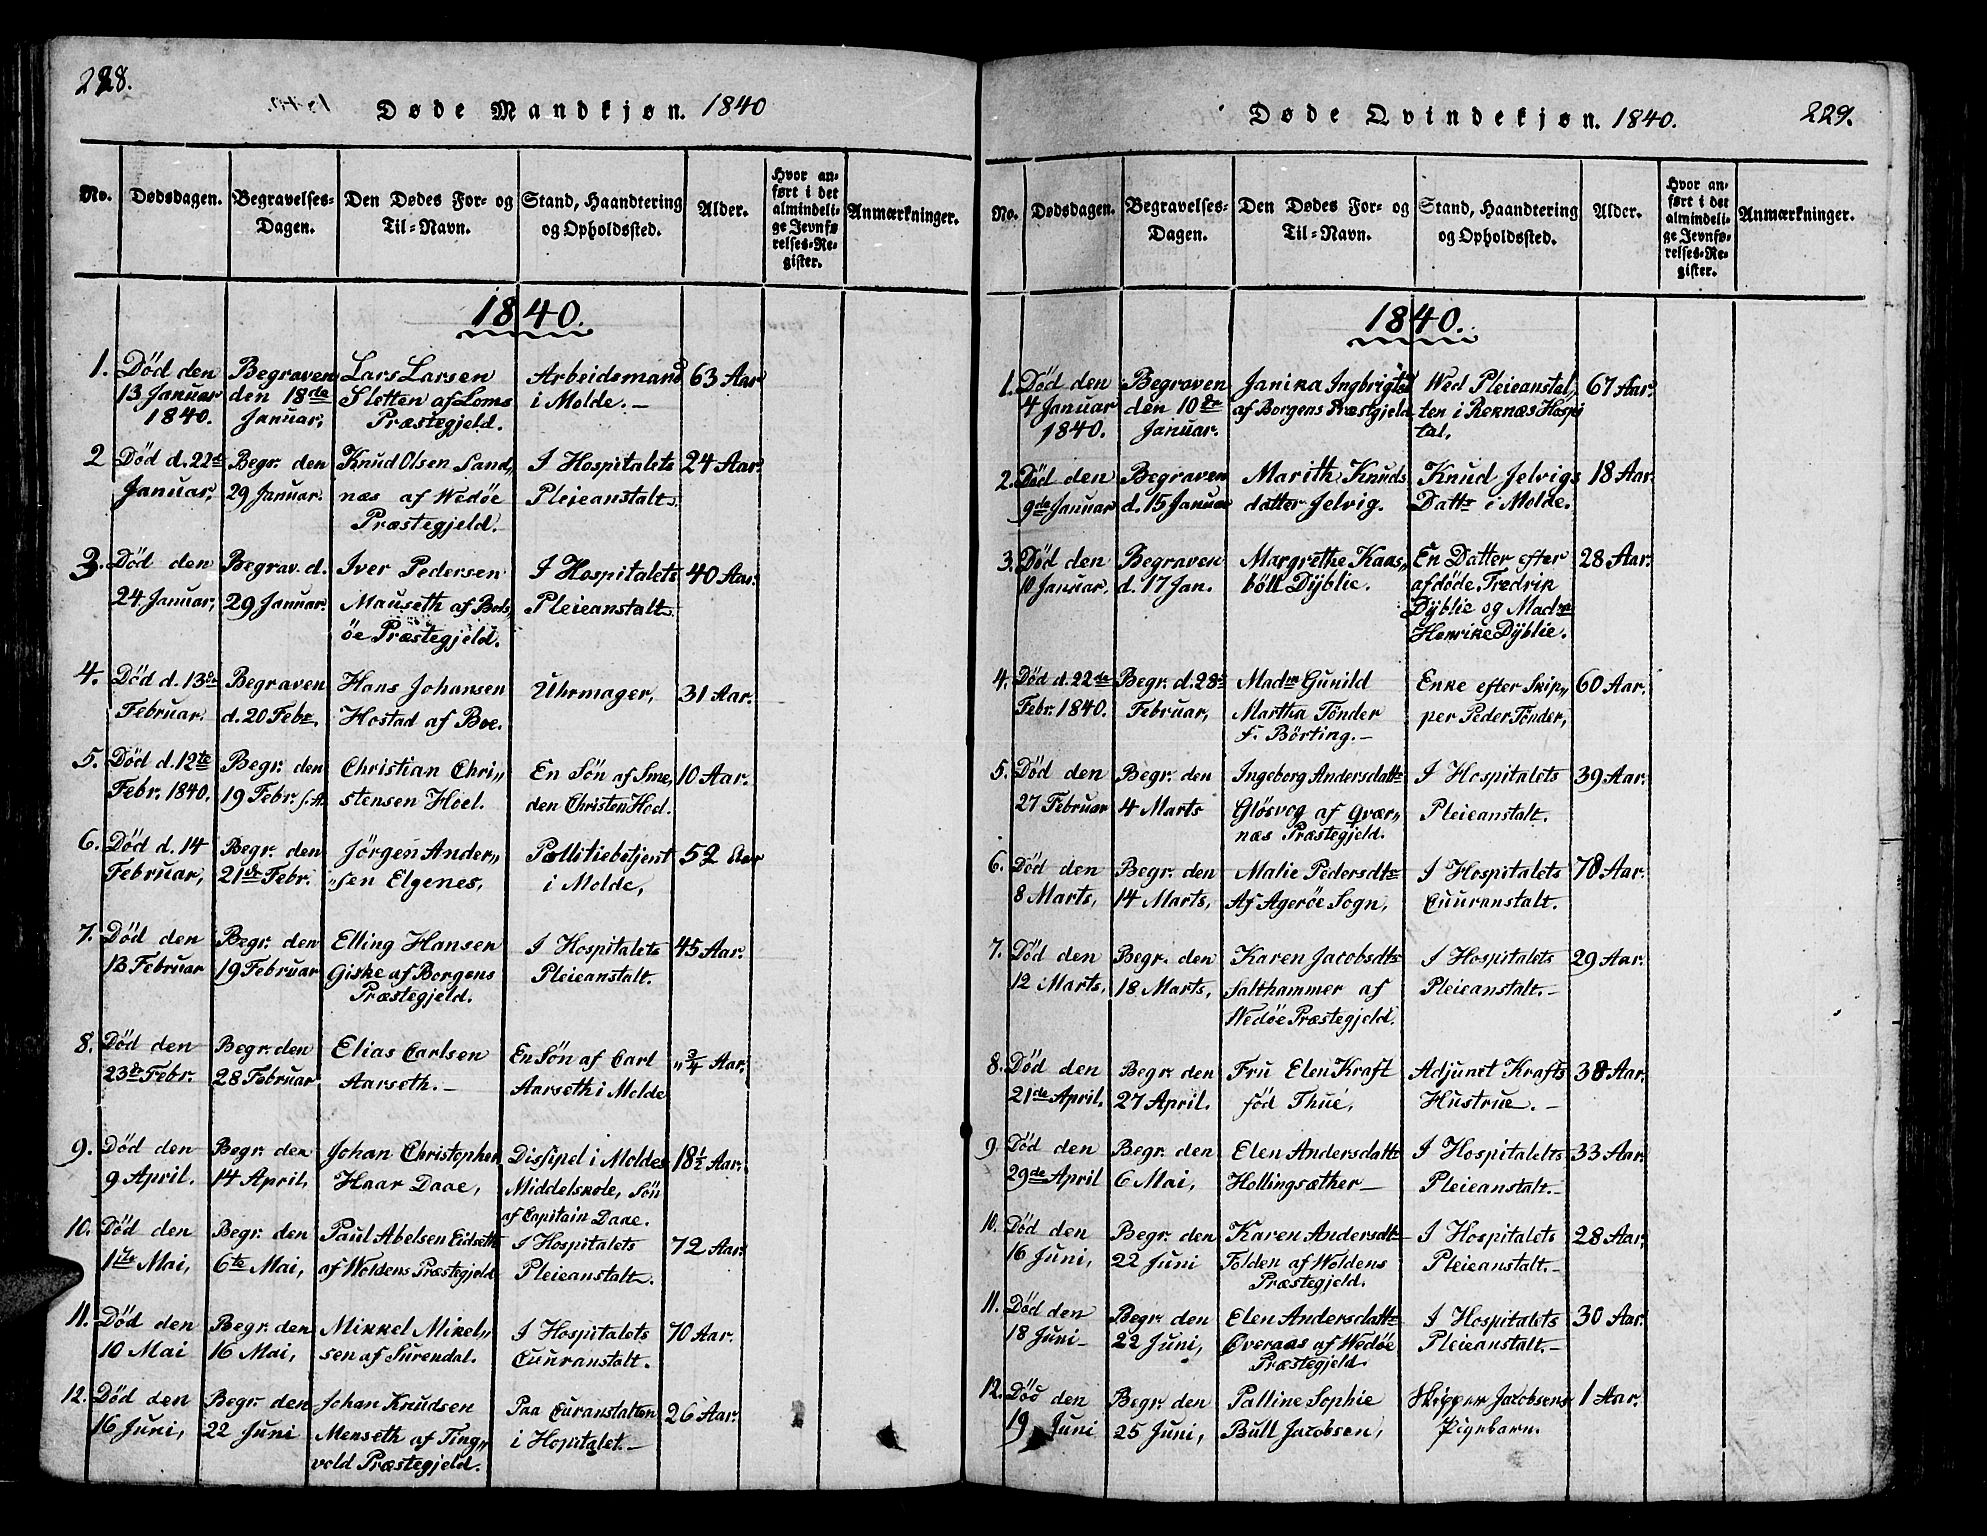 228.
Døde Mandkjøn. 1840
No.
Dødsdagen.
Begravelses-
Dagen.
Den Dødes For- og
Til-Navn.
Stand, Haandtering
og Opholdssted.
Alder.
Hvor an-
ført i det
almindeli-
ge Jevnfø-
relses-Re-
gister.
Anmærkninger.
1840.
1. Død den
13 Januar
1840.
Begraven
den 18de
Januar,
Lars Larsen
Sletten af Loms
Præstegjeld.
Arbeidsmand
i Molde.-
63 Aar
2 Død d. 22de
Januar,
Begr. den
29 Januar.
Knud Olsen Sand,,
næs af Wedøe
Præstegjeld.
I Hospitalets
Pleieanstalt.
24 Aar.
3. Død den
24 Januar,
Begrav. d.
29 Januar.
Iver Pedersen
Mauseth af Bols,,
öe Præstegjeld.
I Hospitalets
Pleieanstalt.
40 Aar.
4. Død d. 13de
Februar.
Begraven
d. 20 Febr.
Hans Johansen
Hostad af Boe.
Uhrmager,
31 Aar.
5. Død d. 12te
Febr. 1840.
Begr. den
19 Febr. s. A.
Christian Chri,,
stensen Hoel.
En Sön af Sme,
den Christen Hoel.
10 Aar.
6. Død d. 14
Februar,
Begr. den
21de Febr.
Jörgen Ander,,
,,sen Elgenes,
Pollitiebetjent
i Molde,
52 Aar
7. Död den
13 Februar
Begr. den
19 Februar
Elling Hansen
Giske af Borgens
Præstegjeld.
I Hospitalets
Pleieanstalt.
45 Aar.
8. Död den
23de Febr.
Begr. den
28 Februar
Elias Carlsen
Aarseth.-
En Sön af Carl
Aarseth i Molde
,, 3/4 Aar.
9. Död den
9 April.
Begr. den
14 April,
Johan Christopher
Haar Daae,
Dissipel i Moldes
Middelskole, Sön
af Capitain Daae.
18 1/2 Aar.
10. Död den
1te Mai,
Begr. den
6te Mai,
Paul Abelsen Eidseth
af Woldens Præstegjeld
I Hospitalets
Pleieanstalt.
72 Aar.
11. Död den
10 Mai
Begr. den
16 Mai,
Mikkel Mikel,,
sen af Surendal.
I Hospitalets
Cuuranstalt.
70 Aar.
12. Död den
16 Juni,
Begr. den
22 Juni
Johan Knudsen
Menseth af Ting,,
vold Præstegjeld.
Paa Curanstalten
i Hopitalet.-
26 Aar.
Døde Qvindekjøn. 1840.
229.
No.
Dødsdagen.
Begravelses-
Dagen.
Den Dødes For- og
Til-Navn.
Stand, Haandtering
og Opholdssted.
Alder.
Hvor an-
ført i det
almindeli-
ge Jevnfø-
relses-Re-
gister.
Anmærkninger.
1840.
1. Død den
4 Januar
1840.
Begraven
den 10de
Januar.
Janika Ingbrigtsd
af Borgens Præstegjeld
Wed Pleieanstal,
ten i Reknæs Hospi
tal.
67 Aar.
2. Død den
9de Januar
Begraven
d. 15 Januar
Marith Knuds
datter Jelvig.
Knud Jelvigs
Dattr i Molde.
18 Aar.
3. Død den
10 Januar.
Begraven
d. 17 Jan.
Margrethe Kaas,,
böll Dÿblie.
En Datter efter
afdöde Fredrik
Dÿblie og Madme
Henrike Dÿblie.
28 Aar.
4. Død d. 22de
Febr. 1840.
Begr. d. 28de
Februar,
Madm Gunild
Martha Tönder
f. Börting.-
Enke efter Skip,,
per Peder Tönder,
60 Aar.
5. Död den
27 Februar
Begr. den
4 Marts
Ingeborg Andersdattr
Glösvog af Qvær,,
næs Præstegjeld.
I Hospitalets
Pleieanstalt.
39 Aar.
6. Död den
8 Marts,
Begr. den
14 Marts,
Malie Pedersdtr
Af Ageröe Sogn,
I Hospitalets
Cuuranstalt.
78 Aar.
7. Död den
12 Marts,
Begr. den
18 Marts,
Karen Jacobsdtr
Salthammer af
Wedöe Præstegjeld.
I Hospitalets
Pleieanstalt.-
29 Aar.
8. Död den
21de April.
Begr. den
27 April.
Fru Elen Kraft
föd Thue,
Adjunct Krafts
Hustrue.-
38 Aar.
9. Död den
29de April
Begr. den
6 Mai,
Elen Andersdattr
Hollingsæther-
I Hospitalets
Pleieanstalt.-
33 Aar.
10. Död den
16 Juni,
Begr. den
22 Juni
Karen Andersdtr
Folden af Woldens
Præstegjeld.
I Hospitalets
Pleieanstalt.-
28 Aar,
11. Död den
18 Juni-
Begr. den
22 Juni,
Elen Andersdattr
Överaas af Wedöe
Præstegjeld.
I Hospitalets
Pleieanstalt.-
30 Aar.
12. Död den
19 Juni
Begr. den
25 Juni,
Palline Sophie
Bull Jacobsen,
Skipper Jacobsens
Pigebarn.
1 Aar.